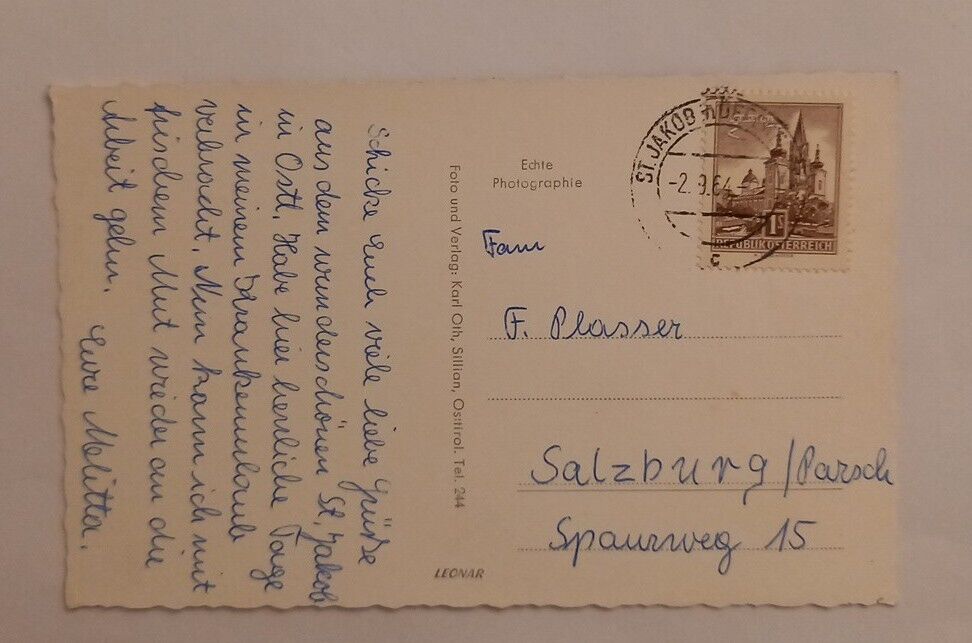 Schicke Euch viele liebe Grüße
aus dem wunderschönen St. Jakob
in Ostt. Habe hier herrliche Tage
in meinem Krankenurlaub
verbracht. Nun kann ich mit
frischem Mut wieder an die
Arbeit gehn.
Eure Melitta.
Foto und Verlag: Karl Oth, Sillian, Osttirol. Tel. 244
LEONAR
Echte
Photographie
ST. JAKOB
-2. 9. 64
c
1S
REPUBLIK ÖSTERREICH
Fam
F. Plasser
Salzburg/Parsch
Spaurweg 15